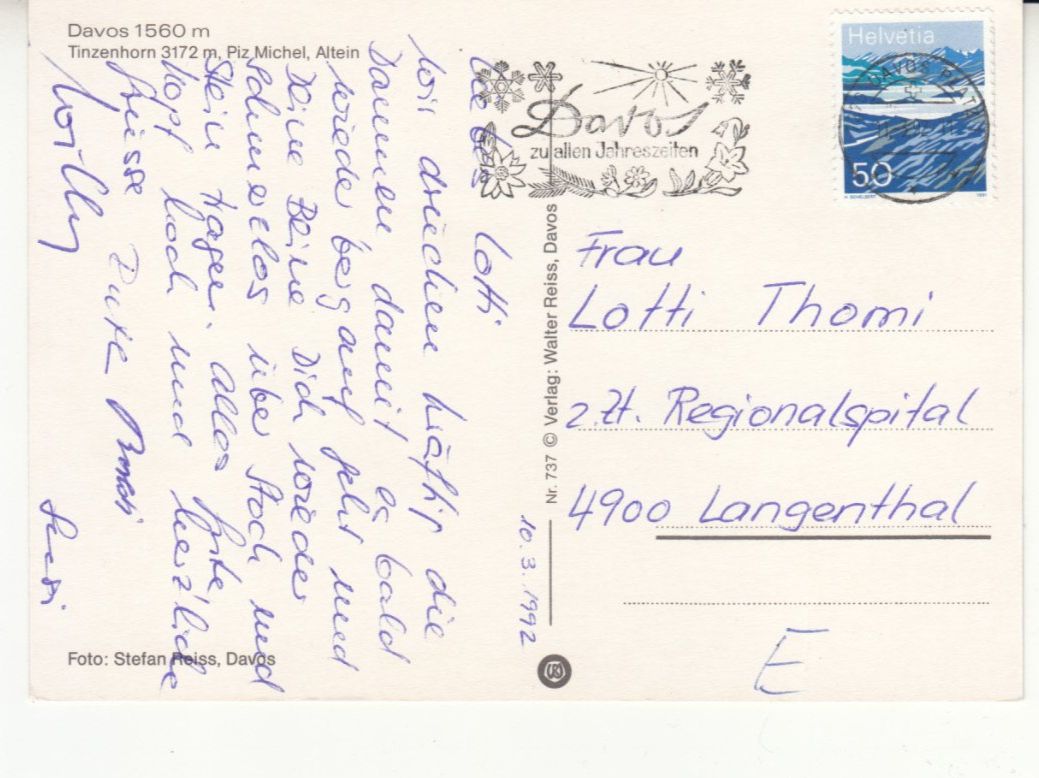 Davos 1560 m
Tinzenhorn 3172 m, Piz Michel, Altein
Helvetia
50
DAVOS PLATZ
Davos
zu allen Jahreszeiten
10.3.1992
Liebes Lotti
Wir drücken kräftig die
Daumen damit es bald
wieder bergauf geht und
Deine Beine Dich wieder
schmerzlos über Stock und
Stein tragen. Alles Gute,
Kopf hoch und herzliche
Grüsse
Willy
Nr. 737 © Verlag: Walter Reiss, Davos
Frau
Lotti Thomi
z.Zt. Regionalspital
4900 Langenthal
E
Foto: Stefan Reiss, Davos